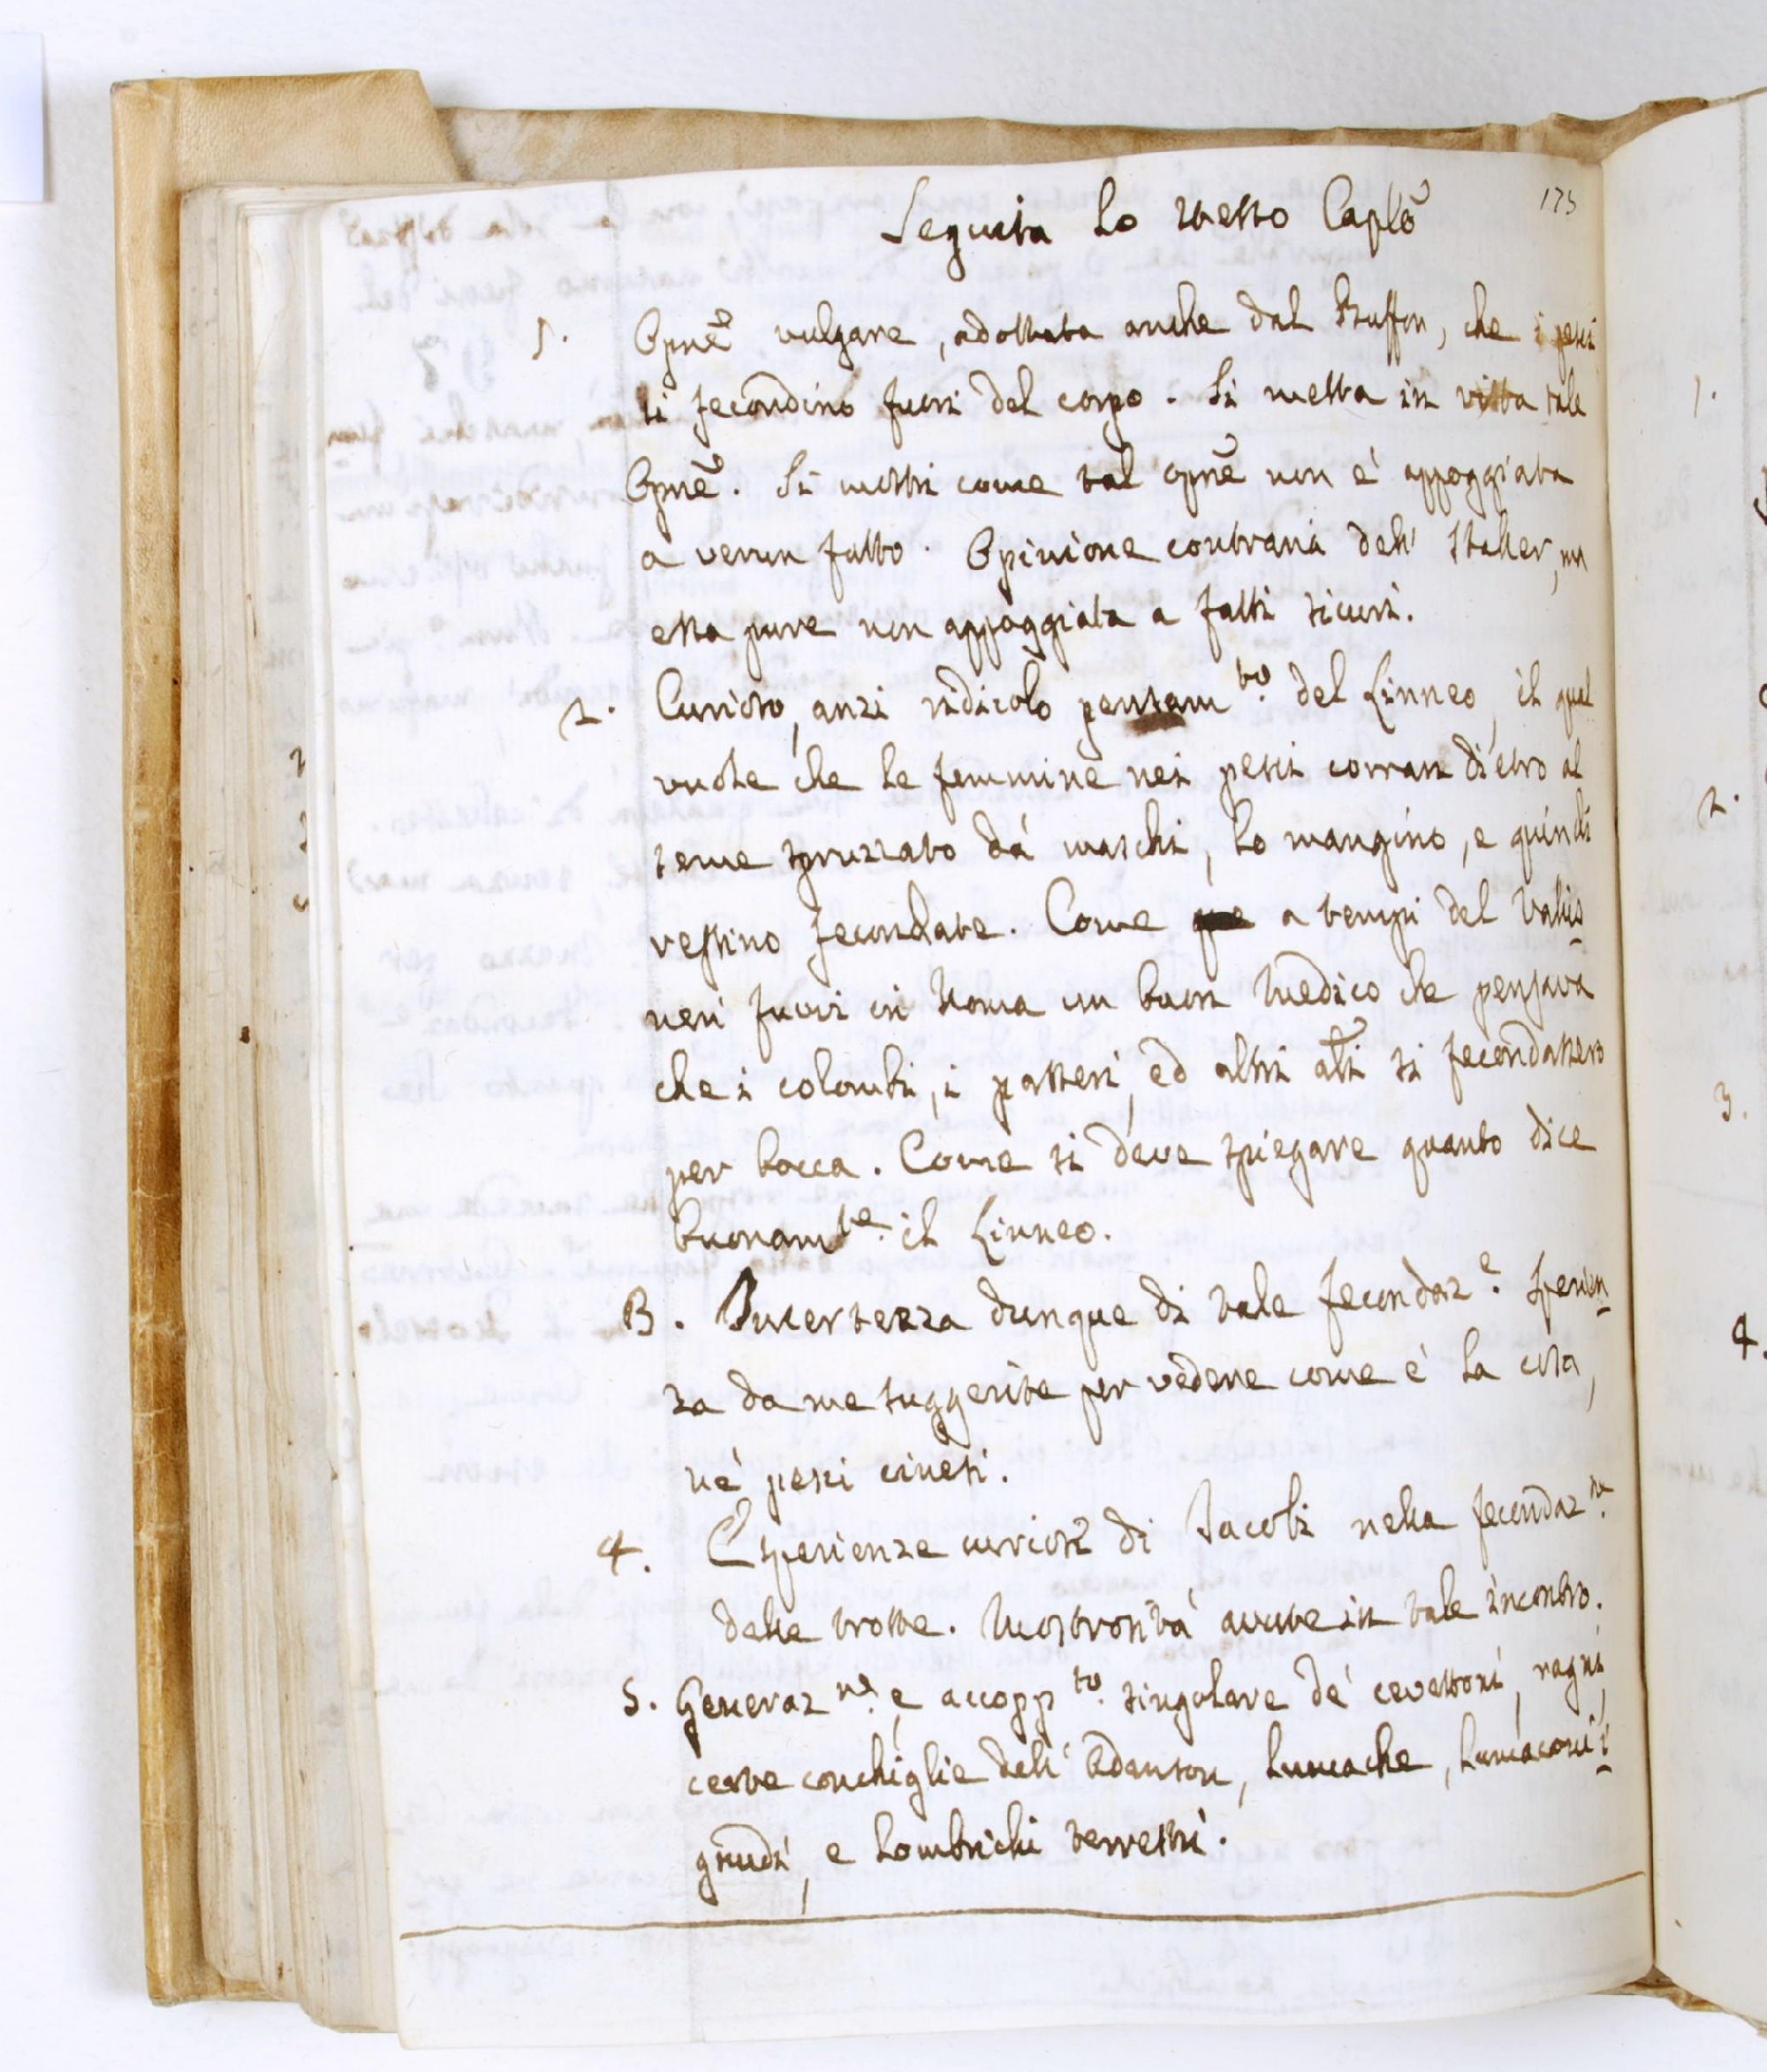 175
Seguita lo stesso Caplo
1. Opne vulgare, adottata anche dal Buffon, che i pesci
si fecondino fuori del corpo. Si metta in vista tale
Opne. Si mostri come tal opne non è appoggiata
a verun fatto. Opinione contraria dell' Haller, ma
essa pure non appoggiata a fatti sicuri.
2. Curioso, anzi ridicolo pensamto. del Linneo, il qual
vuole che le femmine nei pesci corran dietro al
seme spruzzato dá maschi, lo mangino, e quindi
restino fecondate. Come a tempi del Valis
neri fuvvi in Roma un buon Medico che pensava
che i colombi, i passeri, ed altri ali si fecondassero
per bocca. Come si deve spiegare quanto dice
buonamte. il Linneo.
3. Incertezza dunque di tale fecondaze. Sperien
za da me suggerite per vedere come è la cosa,
né pesci cinesi.
4. Esperienze curiosi di Jacobi nella fecondazne.
delle trotte. Mostrosità avute in tale incontro.
5. Generazne. e accoppto. singolare dé cevettoni, ragni,
certe conchiglie dell' Adanson, lumache, lumaconi i
gnudi, e lombrichi terrestri.
1.
2.
3.
4.